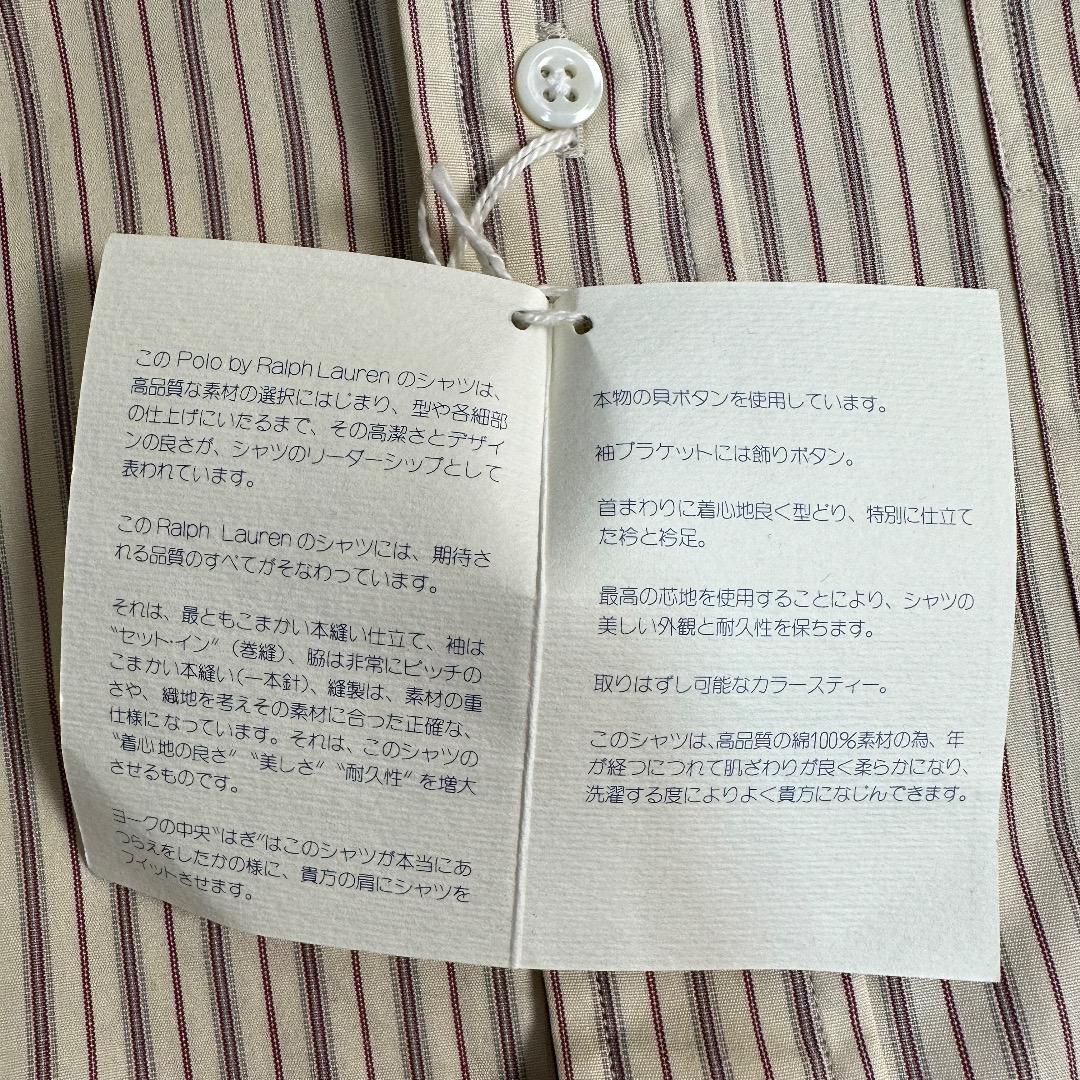 このPolo by Ralph Laurenのシャツは、
高品質な素材の選択にはじまり、型や各細部
の仕上げにいたるまで、その高潔さとデザイ
ンの良さが、シャツのリーダーシップとして
表われています。
このRalph Laurenのシャツには、期待さ
れる品質のすべてがそなわっています。
それは、最ともこまかい本縫い仕立て、袖は
〝セット·イン〞(巻縫)、脇は非常にピッチの
こまかい本縫い(一本針)、縫製は、素材の重
さや、織地を考えその素材に合った正確な、
仕様になっています。それは、このシャツの
〝着心地の良さ〞〝美しさ〞〝耐久性〞を増大
させるものです。
ヨークの中央〝はぎ〞はこのシャツが本当にあ
つらえをしたかの様に、貴方の肩にシャツを
フィットさせます。
本物の貝ボタンを使用しています。
袖プラケットには飾りボタン。
首まわりに着心地良く型どり、特別に仕立て
た衿と衿足。
最高の芯地を使用することにより、シャツの
美しい外観と耐久性を保ちます。
取りはずし可能なカラースティー。
このシャツは、高品質の綿100%素材の為、年
が経つにつれて肌ざわりが良く柔らかになり、
洗濯する度によりよく貴方になじんできます。